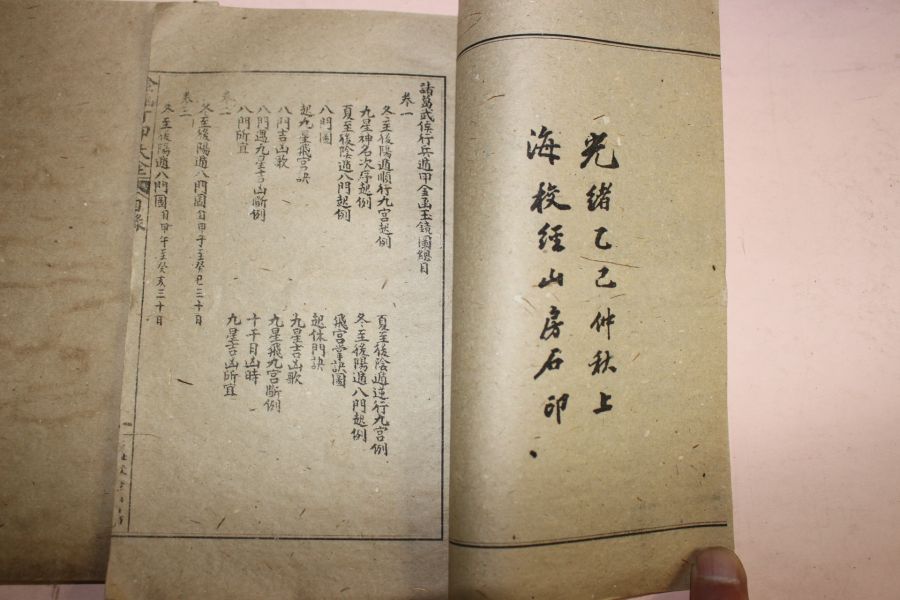 光緒乙巳仲秋上
海校經山房石印
諸葛武侯行兵遁甲金函玉鏡圖總目
卷一
冬至後陽遁順行九宮起例
夏至後陰遁逆行九宮例
九星神名次序起例
冬至後陽遁八門起例
夏至後陰遁八門起例
飛宮掌訣圖
八門圖
起休門訣
起九星飛宮訣
九星吉凶歌
八門吉凶歌
九星飛九宮斷例
八門遇九星吉凶斷例
十干日凶時
八門所宜
九星吉凶所宜
卷二
冬至後陽遁八門圖自甲子至癸巳三十日
卷三
冬至後陽遁八門圖自甲午至癸亥三十日
金函遁甲大全 目錄